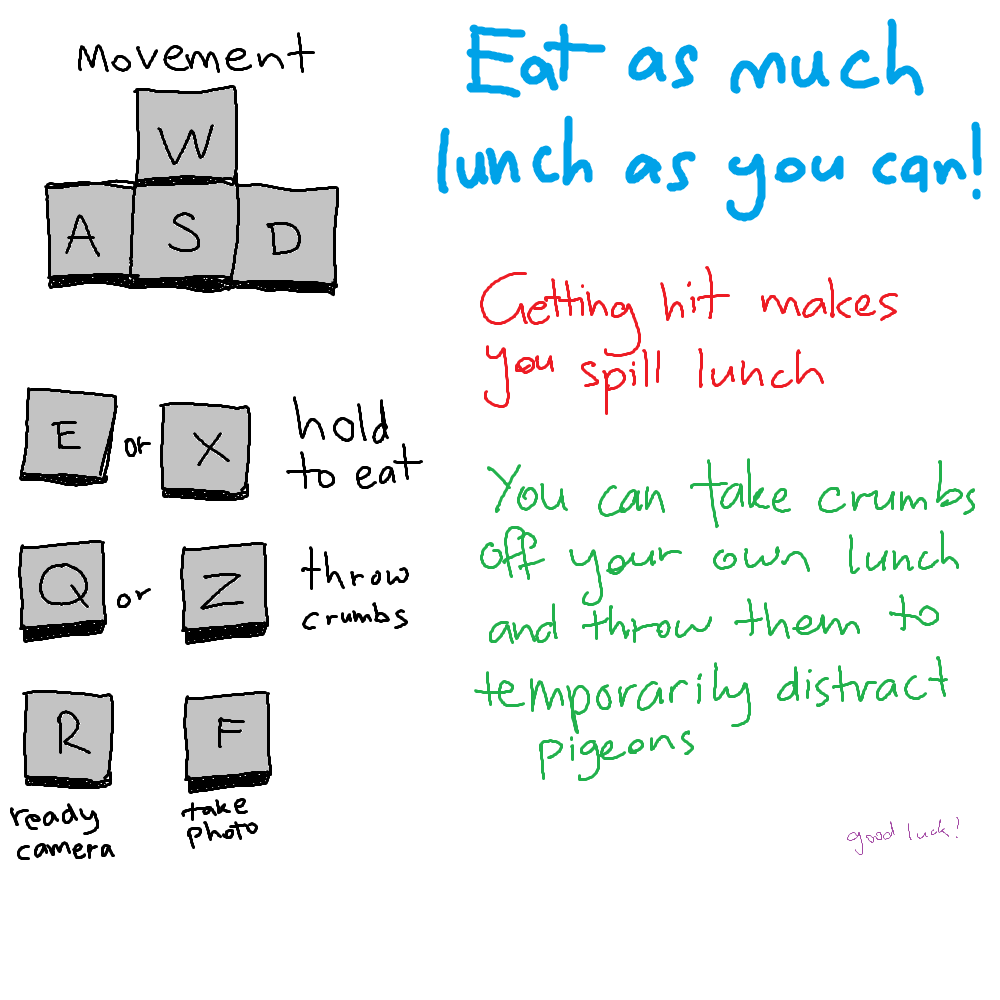 Movement
W
A S D
E or X hold
to eat
Q or Z throw
crumbs
R F
ready
camera
take
photo
Eat as much
lunch as you can!
Getting hit makes
you spill lunch
You can take crumbs
off your own lunch
and throw them to
temporarily distract
pigeons
good luck!